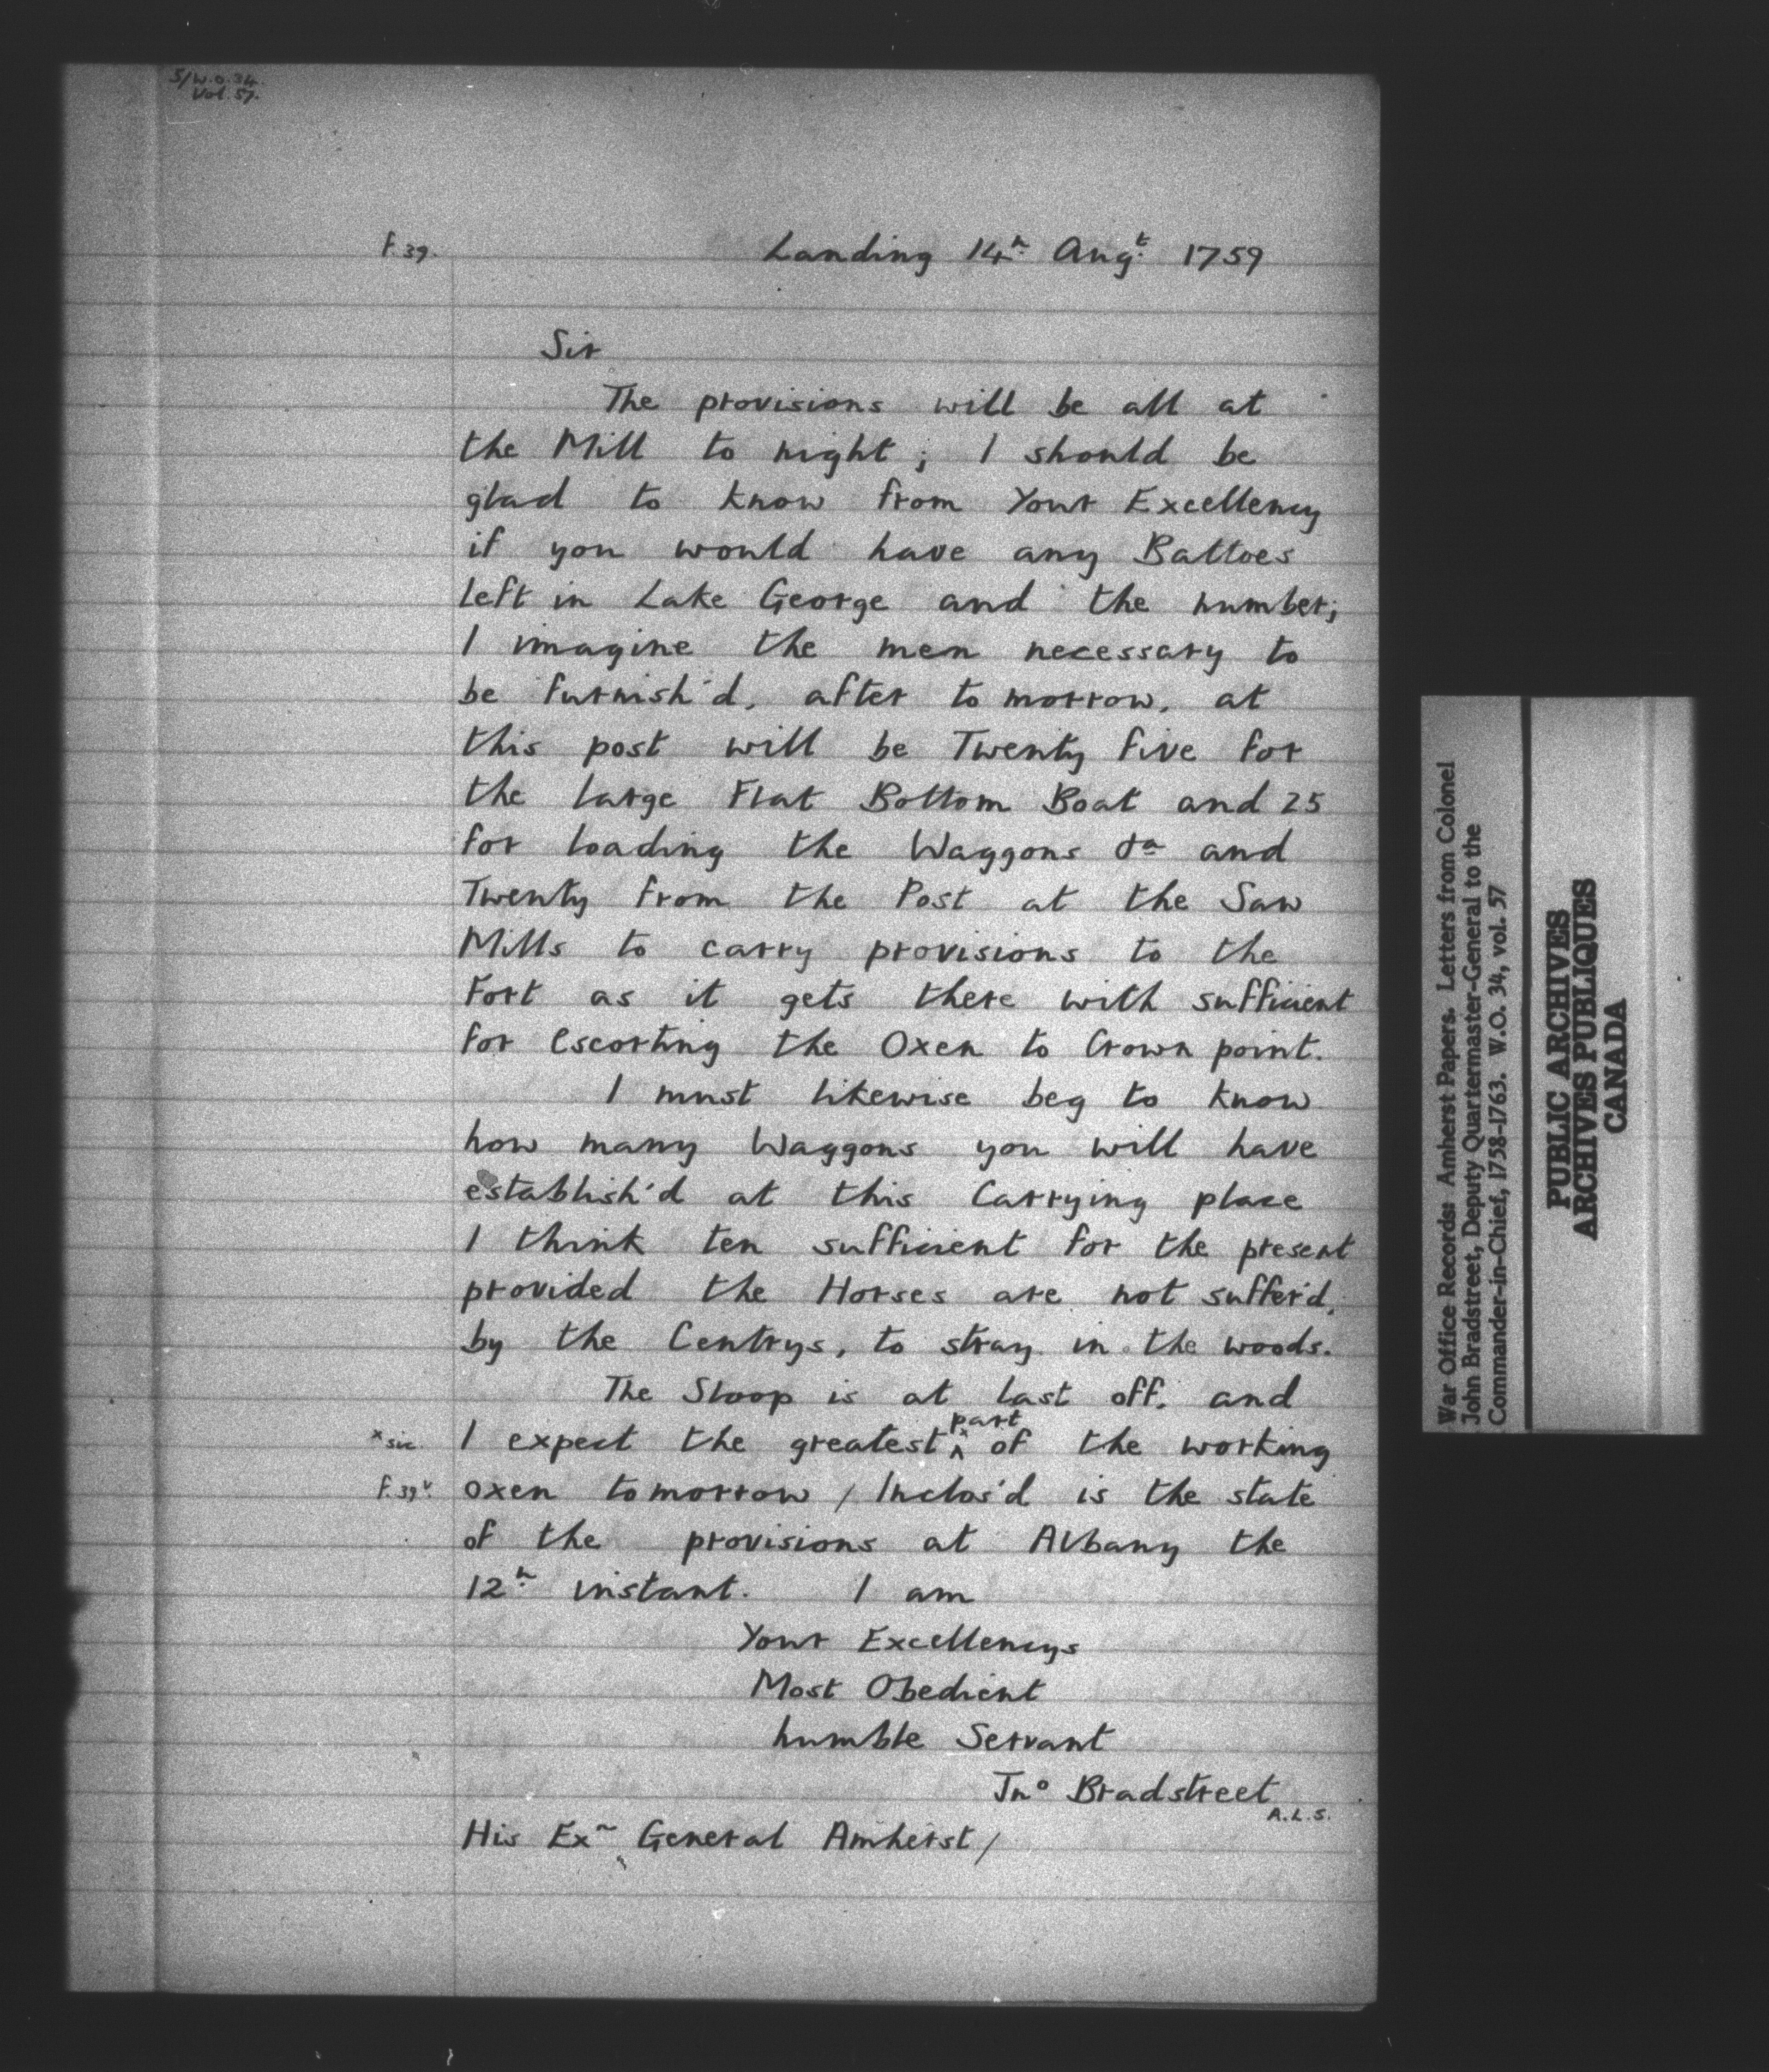 5/W.O.34.
Vol. 57.
f. 39. Landing 14.h Augt. 1759
Sir
The provisions will be all at
the Mill to night; I should be
glad to know from Your Excellency
if you would have any Battoes
left in Lake George and the number;
I imagine the men necessary to
be furnish'd, after to morrow, at
this post will be Twenty five for
the large Flat Bottom Boat and 25
for loading the Waggons &a and
Twenty from the Post at the Saw
Mills to carry provisions to the
Fort as it gets there with sufficient
for Escorting the Oxen to Crown point.
I must likewise beg to know
how many Waggons you will have
establish'd at this Carrying place
I think ten sufficient for the present
provided the Horses are not suffer'd,
by the Centrys, to stray in the woods.
The Sloop is at last off, and
part
x sic I expect the greatest x^ of the working
f. 39v. oxen tomorrow / Inclos'd is the state
of the provisions at Albany the
12.h instant. I am
Your Excellencys
Most Obedient
humble Servant
Jno Bradstreet
A.L.S.
His Ex~ General Amherst /
War Office Records: Amherst Papers. Letters from Colonel
John Bradstreet, Deputy Quartermaster-General to the
Commander-in-Chief, 1758-1763. W.O. 34, vol. 57
PUBLIC ARCHIVES
ARCHIVES PUBLIQUES
CANADA